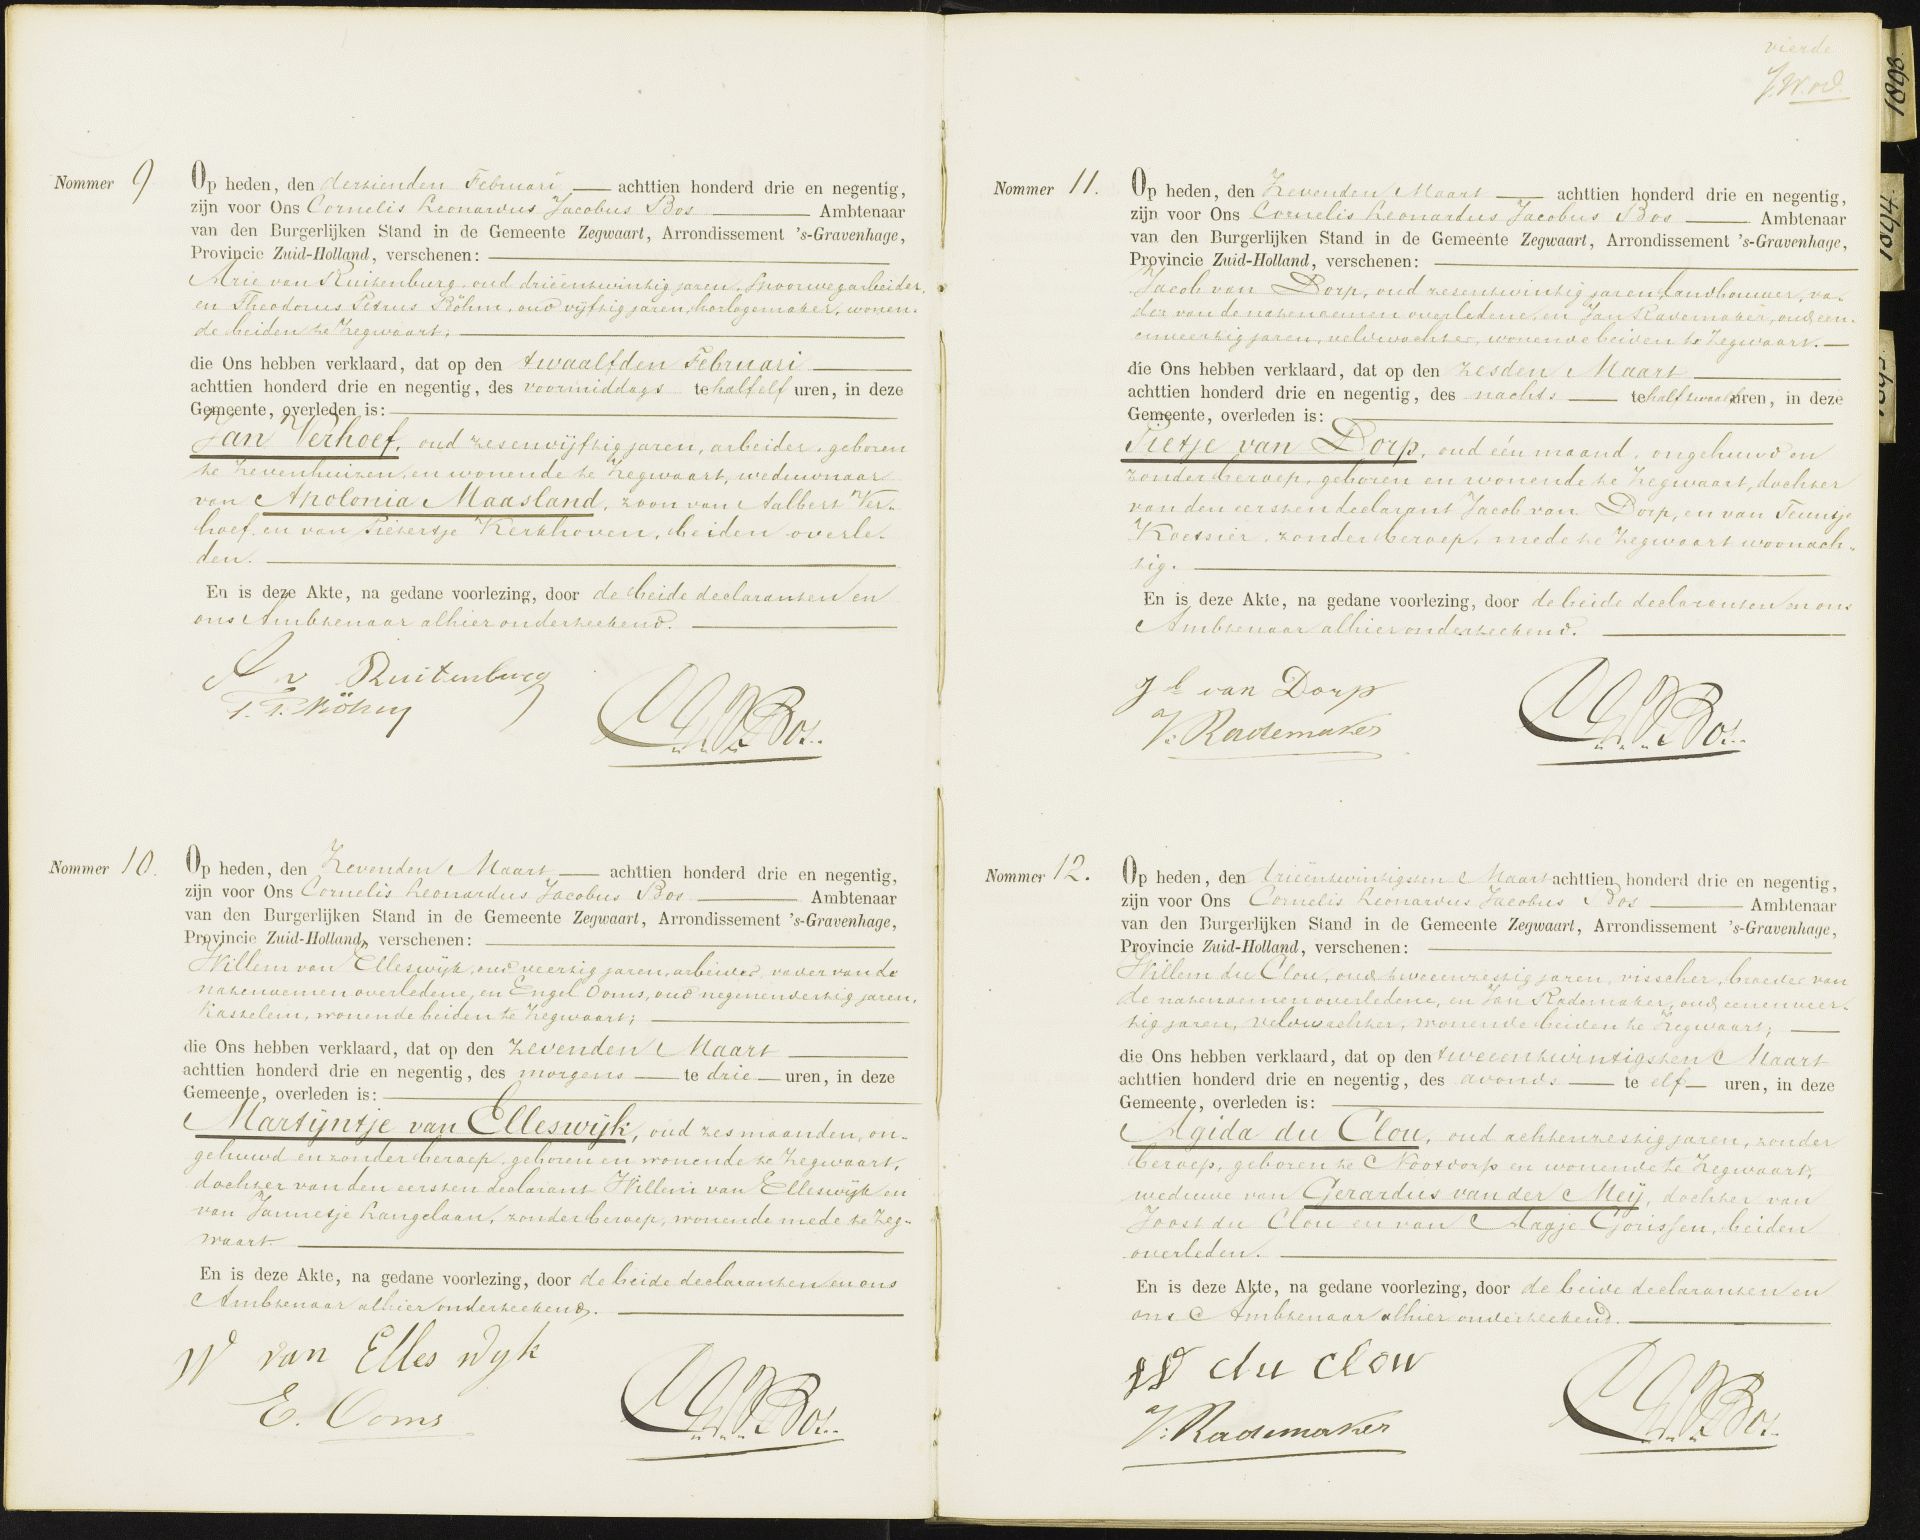 Nommer 9
Op heden, den dertienden Februari achttien honderd drie en negentig,
zijn voor Ons Cornelis Leonardus Jacobus Bos Ambtenaar
van den Burgerlijken Stand in de Gemeente Zegwaart, Arrondissement 's-Gravenhage,
Provincie Zuid-Holland, verschenen:
Arie van Ruitenburg, oud drieëntwintig jaren, spoorwegarbeider,
en Theodorus Petrus Böhm, oud vijftig jaren, horlogemaker, wonen-
de beiden te Zegwaart;
die Ons hebben verklaard, dat op den twaalfden Februari
achttien honderd drie en negentig, des voormiddags te half elf uren, in deze
Gemeente, overleden is:
Jan Verhoef, oud zesenvijftig jaren, arbeider, geboren
te Zevenhuizen, en wonende te Zegwaart, weduwnaar
van Apolonia Maasland, zoon van Aalbert Ver-
hoef, en van Pietertje Kerkhoven, beiden overle-
den.
En is deze Akte, na gedane voorlezing, door de beide declaranten en
ons Ambtenaar alhier onderteekend.
A v Ruitenburg
T. P. Böhm
Bos.
Nommer 10.
Op heden, den Zevenden Maart achttien honderd drie en negentig,
zijn voor Ons Cornelis Leonardus Jacobus Bos Ambtenaar
van den Burgerlijken Stand in de Gemeente Zegwaart, Arrondissement 's-Gravenhage,
Provincie Zuid-Holland, verschenen:
Willem van Elleswijk, oud veertig jaren, arbeider, vader van de
natenoemen overledene, en Engel Ooms, oud negenendertig jaren,
kastelein, wonende beiden te Zegwaart;
die Ons hebben verklaard, dat op den zevenden Maart
achttien honderd drie en negentig, des morgens te drie uren, in deze
Gemeente, overleden is:
Martijntje van Elleswijk, oud zes maanden, on-
gehuwd en zonder beroep, geboren en wonende te Zegwaart,
dochter van den eersten declarant Willem van Elleswijk en
van Jannetje Langelaan, zonder beroep, wonende mede te Zeg-
waart.
En is deze Akte, na gedane voorlezing, door de beide declaranten en ons
Ambtenaar alhier onderteekend.
W van Elles wyk
E. Ooms
Bos.
vierde
Nommer 11.
Op heden, den Zevenden Maart achttien honderd drie en negentig,
zijn voor Ons Cornelis Leonardus Jacobus Bos Ambtenaar
van den Burgerlijken Stand in de Gemeente Zegwaart, Arrondissement 's-Gravenhage,
Provincie Zuid-Holland, verschenen:
Jacob van Dorp, oud zesentwintig jaren, landbouwer, va-
der van de natenoemen overledene, en Jan Rademaker, oud een-
enveertig jaren, veldwachter, wonende beiden te Zegwaart.
die Ons hebben verklaard, dat op den zesden Maart
achttien honderd drie en negentig, des nachts te half twaalf uren, in deze
Gemeente, overleden is:
Pietje van Dorp, oud één maand, ongehuwd en
zonder beroep, geboren en wonende te Zegwaart, dochter
van den eersten declarant Jacob van Dorp, en van Teuntje
Koetsier, zonder beroep, mede te Zegwaart woonach-
tig.
En is deze Akte, na gedane voorlezing, door de beide declaranten en ons
Ambtenaar alhier onderteekend.
Jb van Dorp
J: Rademaker
Bos.
Nommer 12.
Op heden, den drieëntwintigsten Maart achttien honderd drie en negentig,
zijn voor Ons Cornelis Leonardus Jacobus Bos Ambtenaar
van den Burgerlijken Stand in de Gemeente Zegwaart, Arrondissement 's-Gravenhage,
Provincie Zuid-Holland, verschenen:
Willem du Clou, oud tweeenzestig jaren, visscher, broeder van
de natenoemen overledene, en Jan Rademaker, oud eenenveer-
tig jaren, veldwachter, wonende beiden te Zegwaart;
die Ons hebben verklaard, dat op den tweeentwintigsten Maart
achttien honderd drie en negentig, des avonds te elf uren, in deze
Gemeente, overleden is:
Agida du Clou, oud achtenzestig jaren, zonder
beroep, geboren te Nootdorp en wonende te Zegwaart,
weduwe van Gerardus van der Meij, dochter van
Joost du Clou en van Aagje Gorissen, beiden
overleden.
En is deze Akte, na gedane voorlezing, door de beide declaranten en
ons Ambtenaar alhier onderteekend.
W du Clou
J: Rademaker
Bos.
1893.
1894.